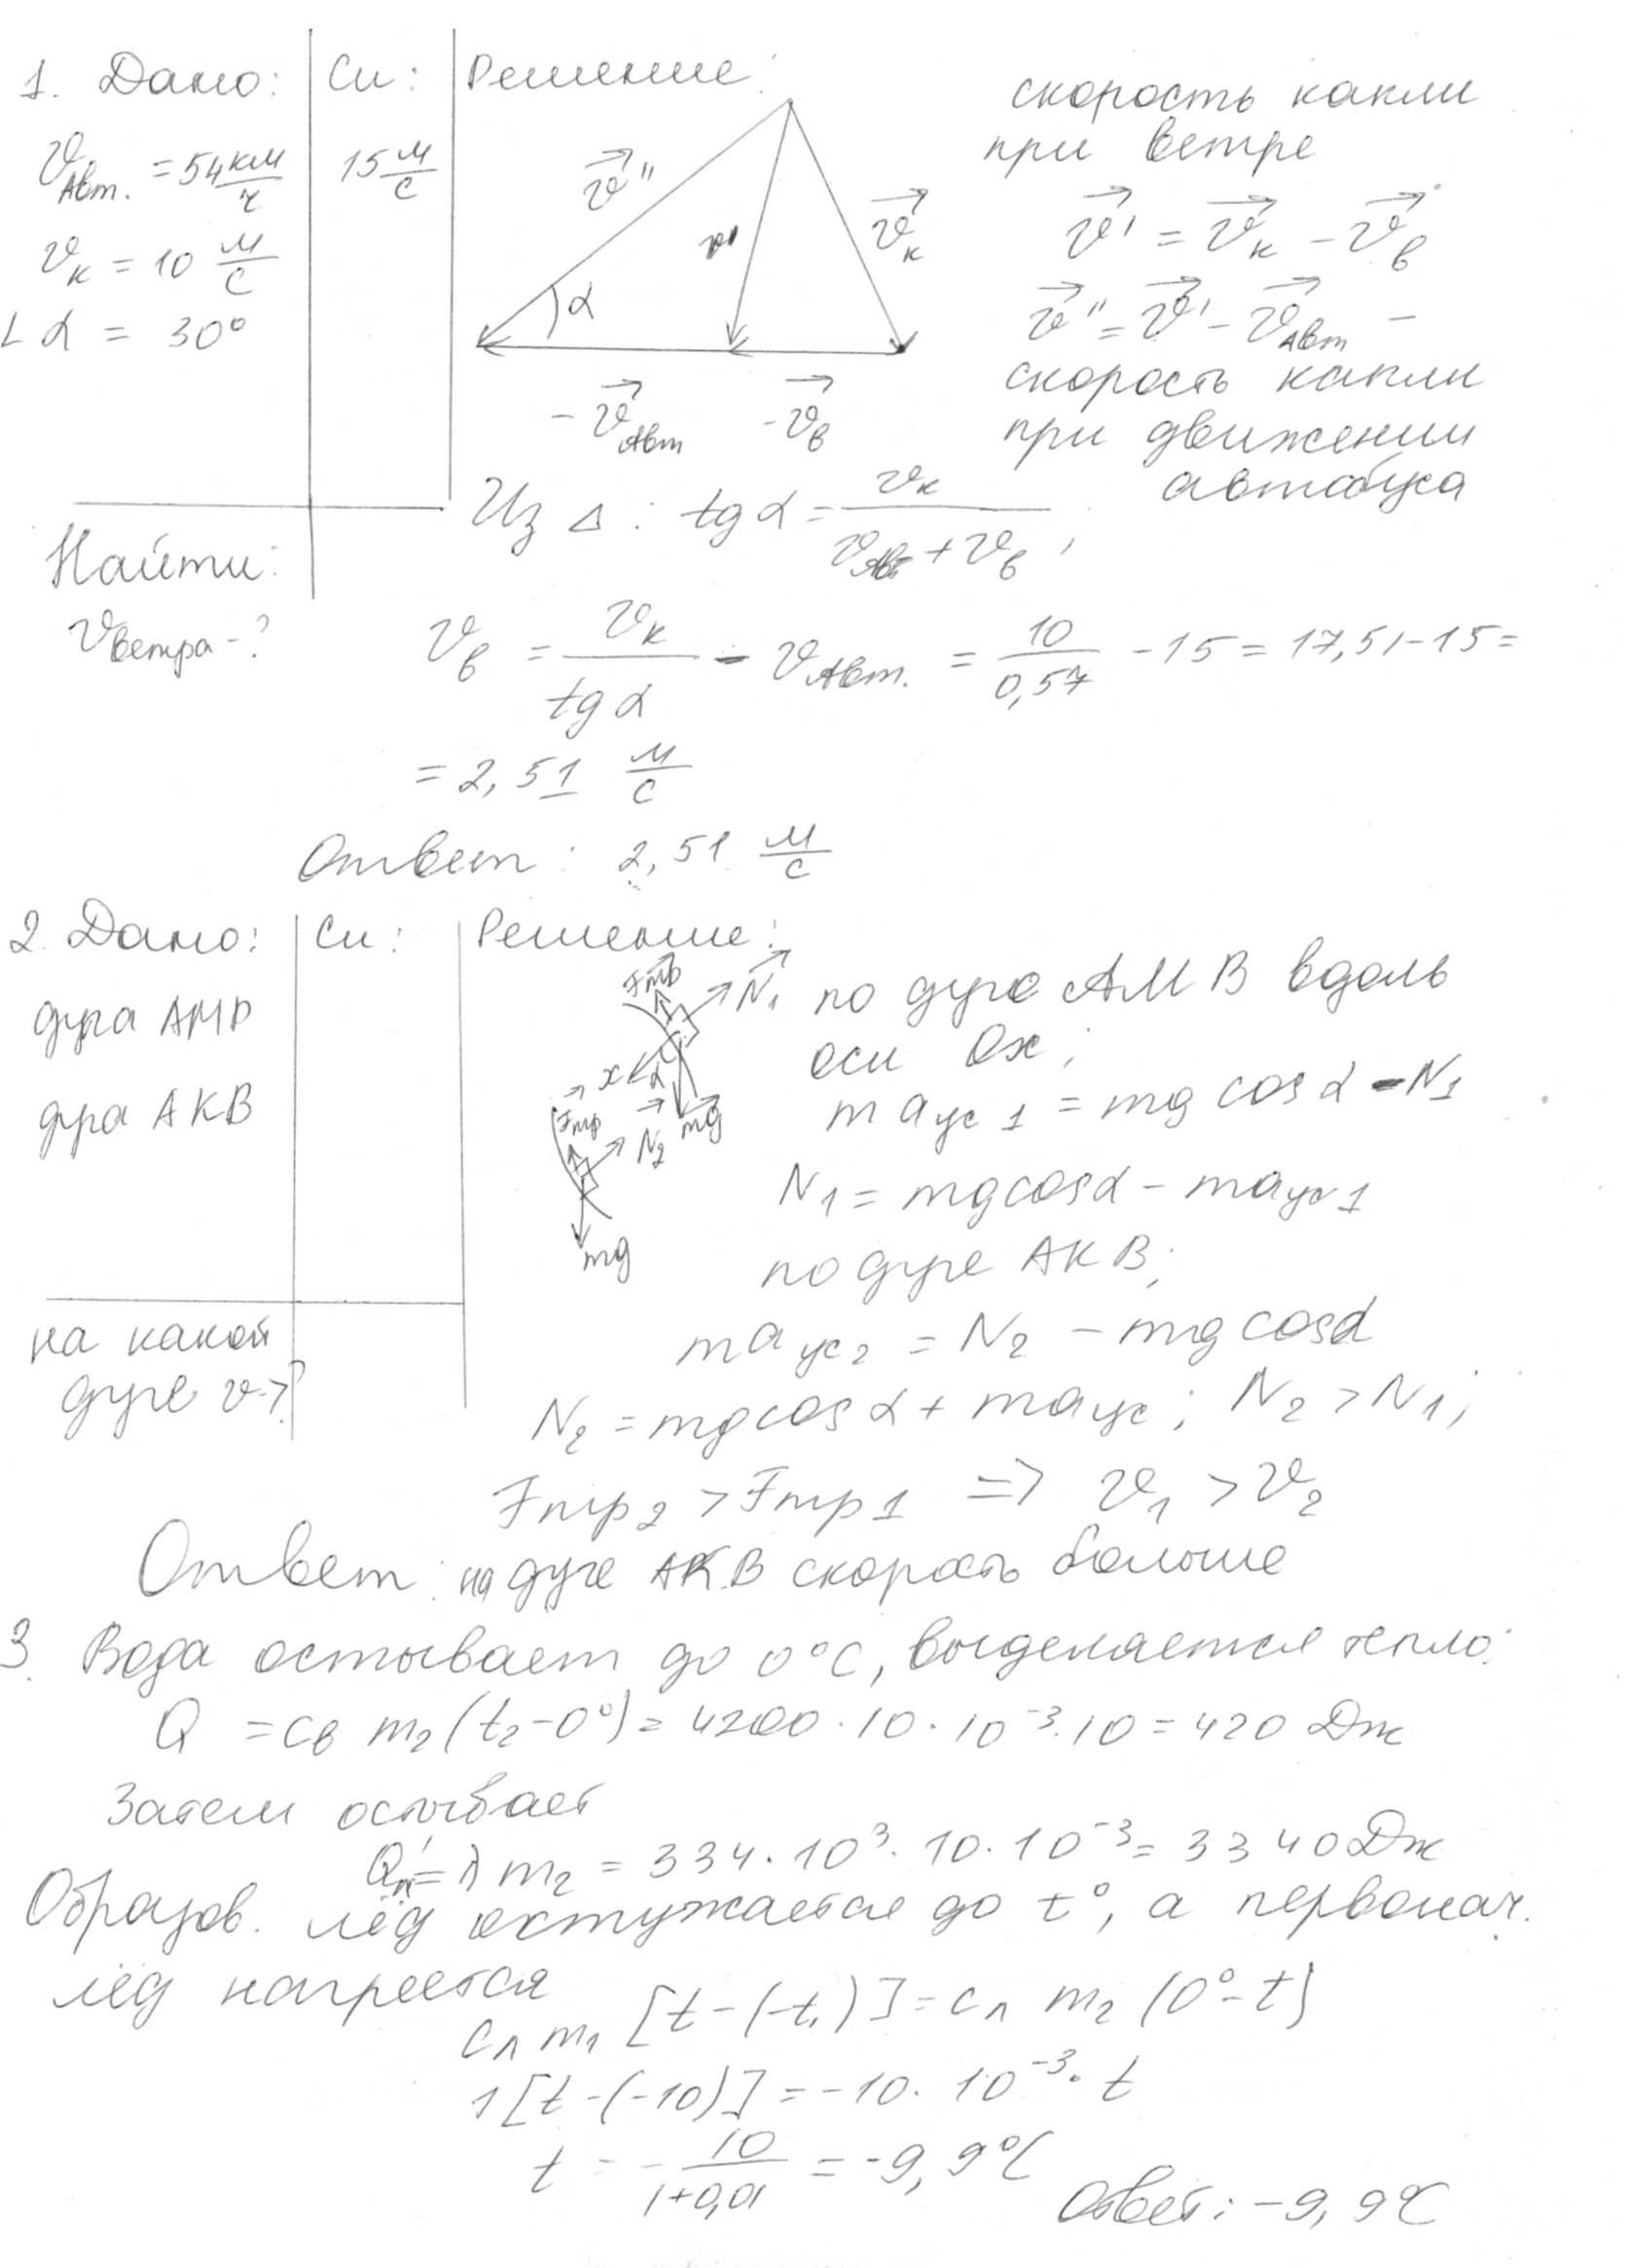 1. Дано: Си: Решение:
скорость капли
при ветре
v Авт. = 54 км/ч 15 м/с
v к = 10 м/с
∠ α = 30°
v'' v' v к
α
- v Авт - v в
v' = v к - v в
v'' = v' - v Авт -
скорость капли
при движении
автобуса
Из Δ: tg α = v к / v Авт + v в ,
Найти:
v ветра - ?
v в = v к / tg α - v Авт. = 10 / 0,57 - 15 = 17,51 - 15 =
= 2,51 м/с
Ответ: 2,51 м/с
2. Дано: Си: Решение:
дуга АМВ
дуга АКВ
Fтр N1
x α mg
Fтр N2
mg
по дуге АМВ вдоль
оси Ох;
m a ус 1 = mg cos α - N1
N1 = mg cos α - m a ус 1
по дуге АКВ;
m a ус 2 = N2 - mg cos α
на какой
дуге v > ?
N2 = mg cos α + m a ус ; N2 > N1;
Fтр 2 > Fтр 1 => v1 > v2
Ответ: на дуге АКВ скорость больше
3. Вода остывает до 0°С, выделяется тепло:
Q = св m2 (t2 - 0°) = 4200 · 10 · 10⁻³ · 10 = 420 Дж
Затем остывает
Q'л = λ m2 = 334 · 10³ · 10 · 10⁻³ = 3340 Дж
Образов. лёд охлужается до t°, а первонач.
лёд нагреется
cл m1 [t - (-t1)] = cл m2 (0° - t)
1[t - (-10)] = -10 · 10⁻³ · t
t = - 10 / 1+0,01 = -9,9°С
Ответ: -9,9°С